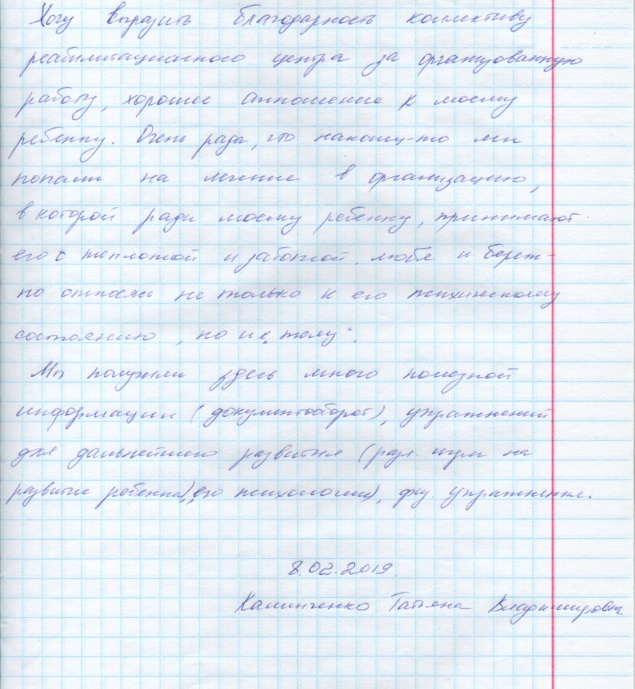 Хочу выразить благодарность коллективу
реабилитационного центра за организованную
работу, хорошее отношение к моему
ребенку. Очень рада, что наконец-то мы
попали на лечение в организацию,
в которой рады моему ребенку, принимают
его с теплотой и заботой, и береж-
но относясь не только к его психическому
состоянию, но и к телу.
Мы получили здесь много полезной
информации (документооборот), упражнений
для дальнейшего развития (разл. игры на
развитие ребенка, его психологии), физ. упражнения.
8.02.2019
Калинченко Татьяна Владимировна